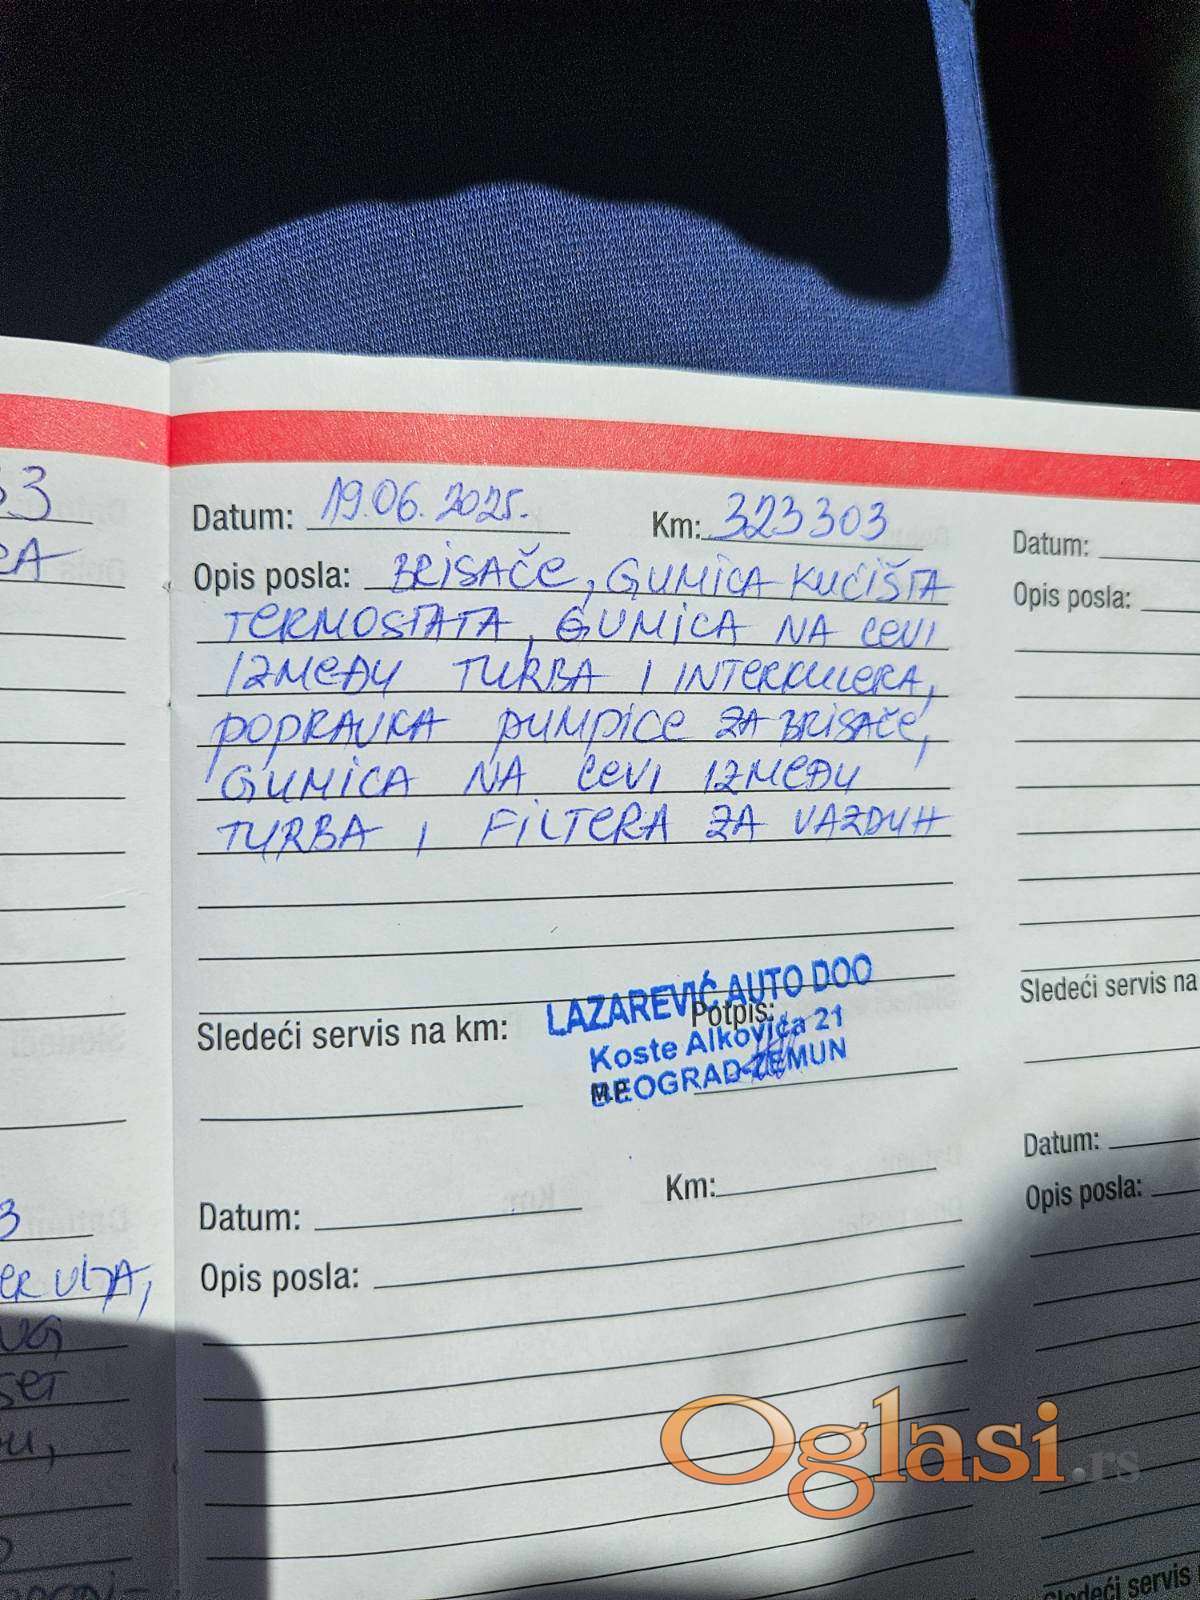 33
Datum: 19.06.2025. Km: 323303
Opis posla: BRISAČE, GUMICA KUĆIŠTA
TERMOSTATA, GUMICA NA CEVI
IZMEĐU TURBA I INTERKULERA,
POPRAVKA PUMPICE ZA BRISAČE,
GUMICA NA CEVI IZMEĐU
TURBA I FILTERA ZA VAZDUH
Sledeći servis na km:
Potpis:
M.P.
LAZAREVIĆ AUTO DOO
Koste Alkovića 21
BEOGRAD-ZEMUN
Datum: Km:
Opis posla:
3
SET
Datum:
Opis posla:
Sledeći servis na
Datum:
Opis posla:
Sledeći servis
Oglasi.rs